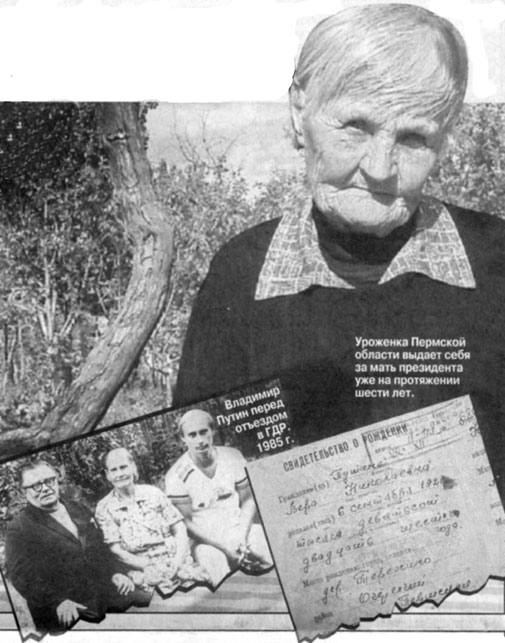 Уроженка Пермской
области выдает себя
за мать президента
уже на протяжении
шести лет.
Владимир
Путин перед
отъездом
в ГДР.
1985 г.
СВИДЕТЕЛЬСТВО О РОЖДЕНИИ
Гражданин(ка) Путина
Вера Николаевна
родился(лась) 6 сентября 1926
тысяча девятьсот
двадцать шестого
года
Место рождения
дер. Терехино
Очерский